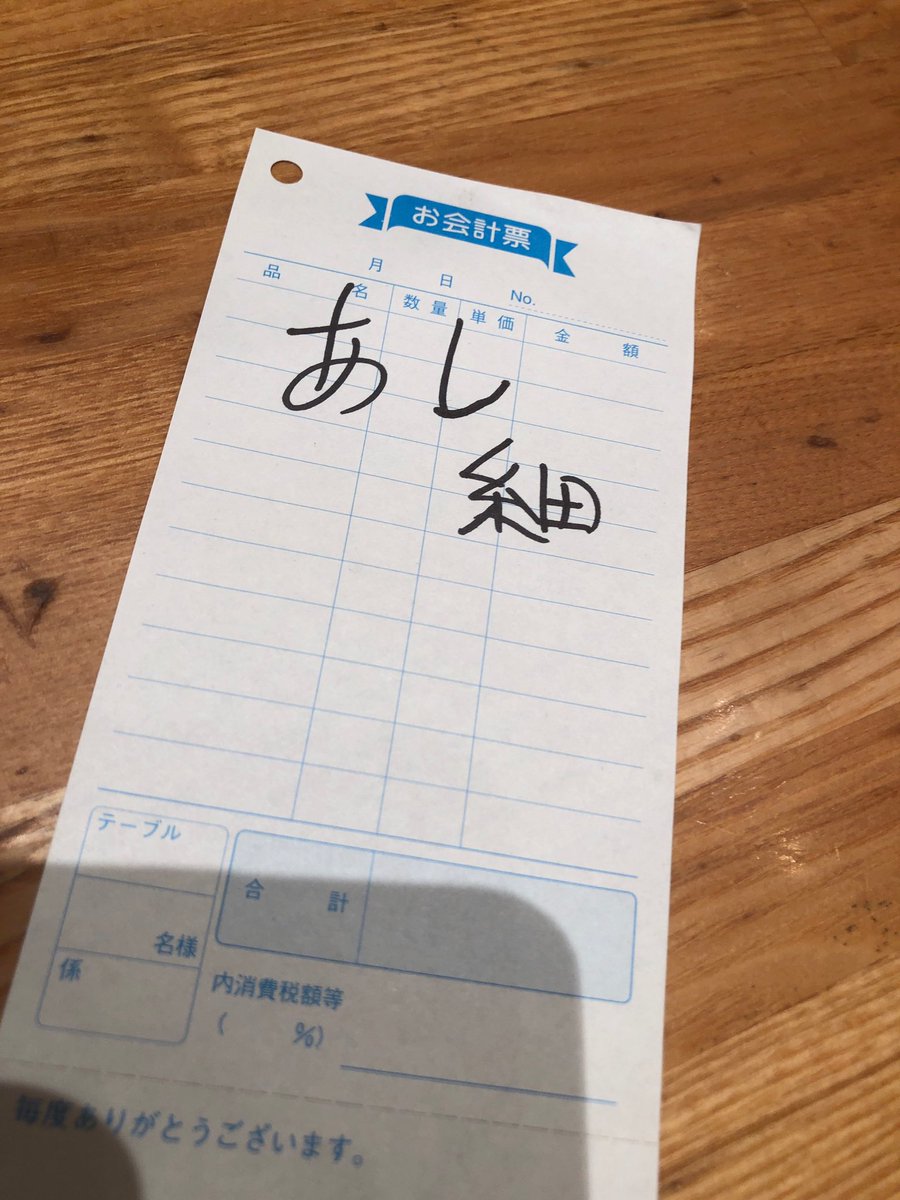 お会計票
月 日 No.
品名 数量 単価 金額
あし
細
テーブル
名様
係
合計
内消費税額等
( %)
毎度ありがとうございます。